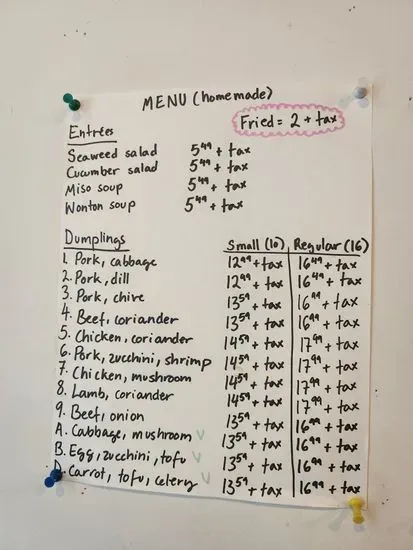 MENU (homemade)
Fried = 2 + tax
Entrées
Seaweed salad 5⁴⁹ + tax
Cucumber salad 5⁴⁹ + tax
Miso soup 5⁴⁹ + tax
Wonton soup 5⁴⁹ + tax
Dumplings Small (10) Regular (16)
1. Pork, cabbage 12⁹⁹ + tax 16⁴⁹ + tax
2. Pork, dill 12⁹⁹ + tax 16⁴⁹ + tax
3. Pork, chive 13⁵⁹ + tax 16⁹⁹ + tax
4. Beef, coriander 13⁵⁹ + tax 16⁹⁹ + tax
5. Chicken, coriander 14⁵⁹ + tax 17⁹⁹ + tax
6. Pork, zucchini, shrimp 14⁵⁹ + tax 17⁹⁹ + tax
7. Chicken, mushroom 14⁵⁹ + tax 17⁹⁹ + tax
8. Lamb, coriander 14⁵⁹ + tax 17⁹⁹ + tax
9. Beef, onion 13⁵⁹ + tax 16⁹⁹ + tax
A. Cabbage, mushroom V 13⁵⁹ + tax 16⁹⁹ + tax
B. Egg, zucchini, tofu V 13⁵⁹ + tax 16⁹⁹ + tax
D. Carrot, tofu, celery V 13⁵⁹ + tax 16⁹⁹ + tax